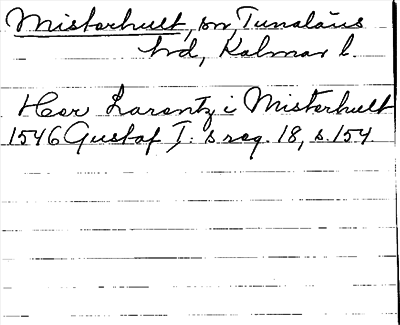 Misterhult, sn, Tunaläns
hd, Kalmar l.
Herr Larentz i Misterhult
1546 Gustaf I: s reg. 18, s. 154